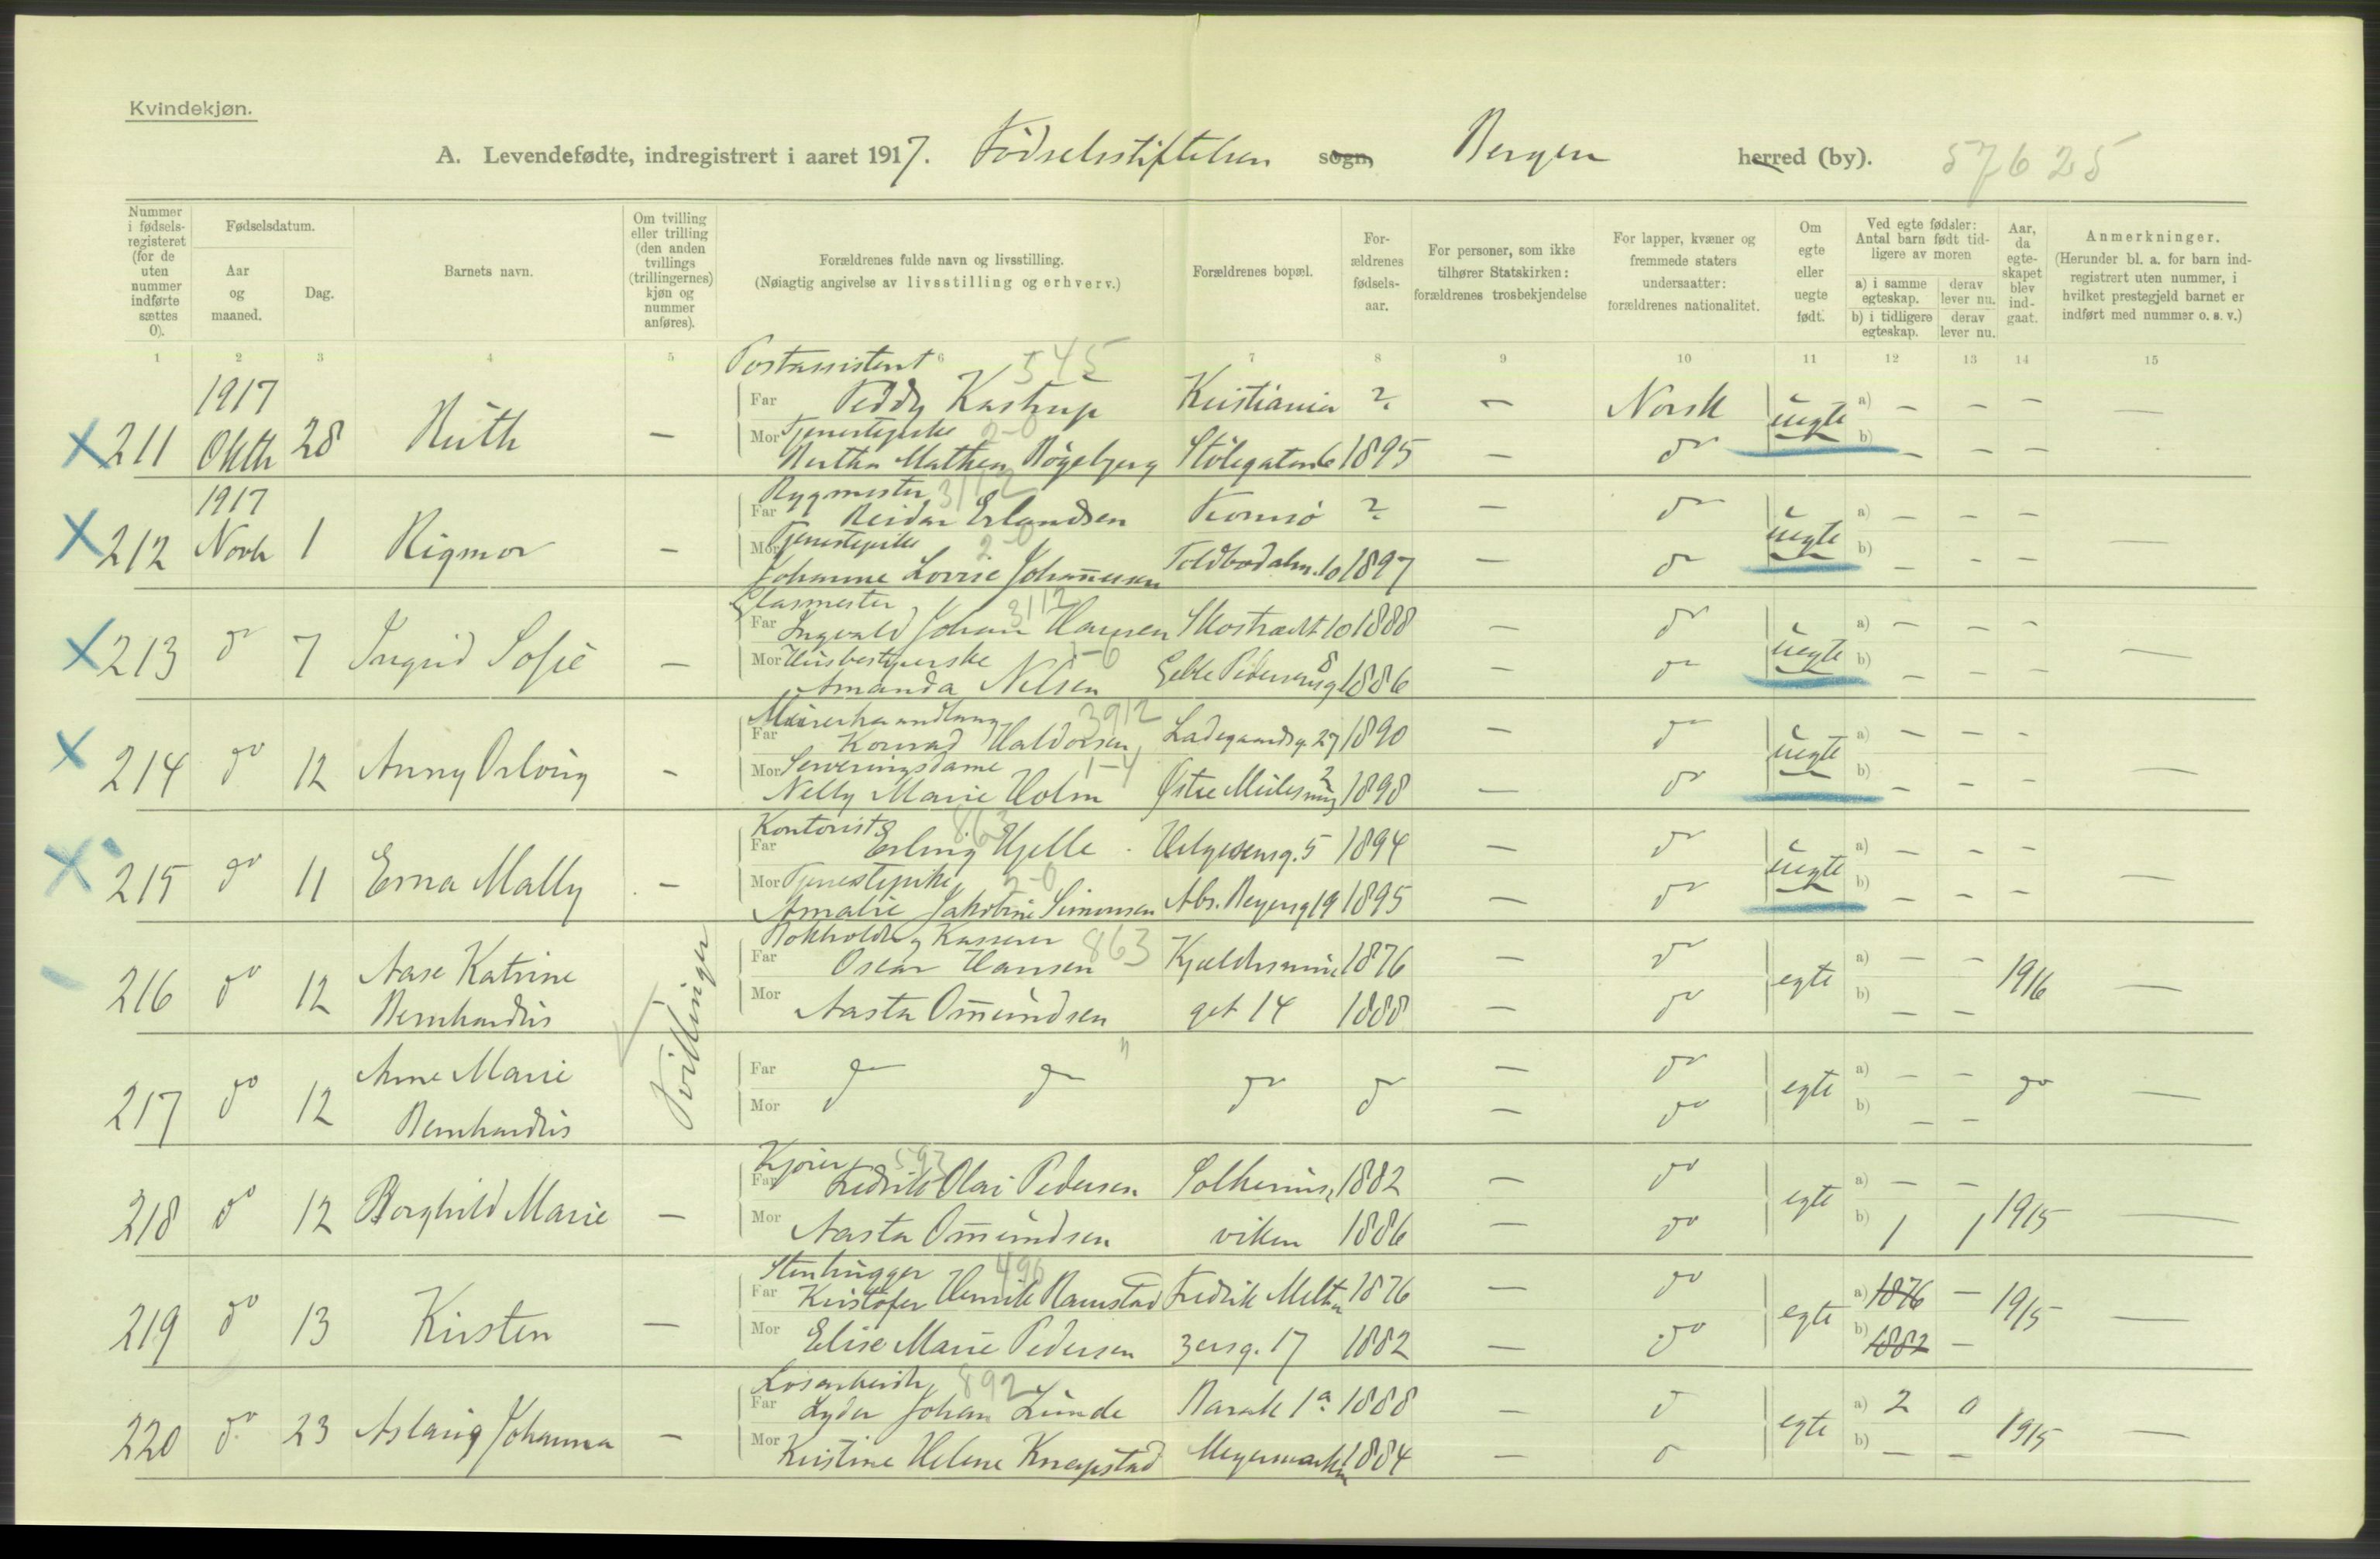 Kvindekjøn.
A. Levendefødte, indregistrert i aaret 1917. Födselsstiftelsen sogn, Bergen herred (by). 57625
Nummer i fødselsregisteret (for de uten nummer indførte sættes 0).
Fødselsdatum.
Aar og maaned.
Dag.
Barnets navn.
Om tvilling eller trilling (den anden tvillings (trillingernes) kjøn og nummer anføres).
Forældrenes fulde navn og livsstilling.
(Nøiagtig angivelse av livsstilling og erhverv.)
Forældrenes bopæl.
Forældrenes fødselsaar.
For personer, som ikke tilhører Statskirken: forældrenes trosbekjendelse
For lapper, kvæner og fremmede staters undersaatter: forældrenes nationalitet.
Om egte eller uegte født.
Ved egte fødsler: Antal barn født tidligere av moren
a) i samme egteskap. derav lever nu.
b) i tidligere egteskap. derav lever nu.
Aar, da egteskapet blev indgaat.
Anmerkninger.
(Herunder bl. a. for barn indregistrert uten nummer, i hvilket prestegjeld barnet er indført med nummer o. s. v.)
1 2 3 4 5 6 7 8 9 10 11 12 13 14 15
Postassistent 545
1917 Far Teddy Kastrup Kristiania ? — Norsk a) — — —
X 211 Oktb 28 Ruth — Mor Tjenestepike 2-0 uegte —
Bertha Mathea Bögebjerg Stölegaten 6 1895 — do b) — — —
1917 Rygmester 3112
Far Reidar Erlandsen Tromsö ? — do a) — — —
X 212 Novb 1 Rigmor — Mor Tjenestepike 2-0 uegte —
Johanne Lovise Johannesen Toldbodalm. 10 1897 — do b) — — —
Glasmester 3112
Far Ingvald Johan Hansen Skostrædt 10 1888 — do a) — — —
X 213 do 7 Ingrid Sofie — Mor Husbestyrerske 1-6 uegte —
Amanda Nilsen Geble Pedersensg 8 1886 — do b) — — —
3912
Far Konrad Haldorsen Ladegaardsg. 27 1890 — do a) — — —
X 214 do 12 Anny Oslaug — Mor Serveringsdame 1-4 uegte —
Nelly Marie Holm Østre Mulesmug 2 1898 — do b) — — —
Kontorist 863
Far Erling Hjelle Helgesensg. 5 1894 — do a) — — —
X 215 do 11 Erna Mally — Mor Tjenestepike 2-0 uegte —
Amalie Jakobine Simonsen Abs. Beyersg 19 1895 — do b) — — —
Bokholder og Kasserer 863
Far Oscar Hansen Kjeldersmu 1876 — do a) — —
216 do 12 Aase Katrine Bernhardus Tvillinger egte 1916 —
Mor Aasta Omundsen get 14 1888 — do b) — —
Far do do do do — do a) — —
217 do 12 Anne Marie Bernhardus egte do —
Mor " — do b) — —
Kjører 593
Far Fredrik Olai Pedersen Solheims 1882 — do a) — —
218 do 12 Borghild Marie — egte 1915 —
Mor Aasta Omundsen viken 1886 — do b) 1 1
Stenhugger 496
Far Kristofer Henrik Ramstad Fredrik Melt 1876 — do a) 1876 —
219 do 13 Kirsten — egte 1915 —
Mor Elise Marie Pedersen zersg. 17 1882 — do b) 1882 —
Løsarbeider 892
Far Lyder Johan Lunde Barak 1a 1888 — do a) 2 0
220 do 23 Aslaug Johanna — egte 1915 —
Mor Kristine Helene Knapstad Meyermarken 1884 — do b) — —